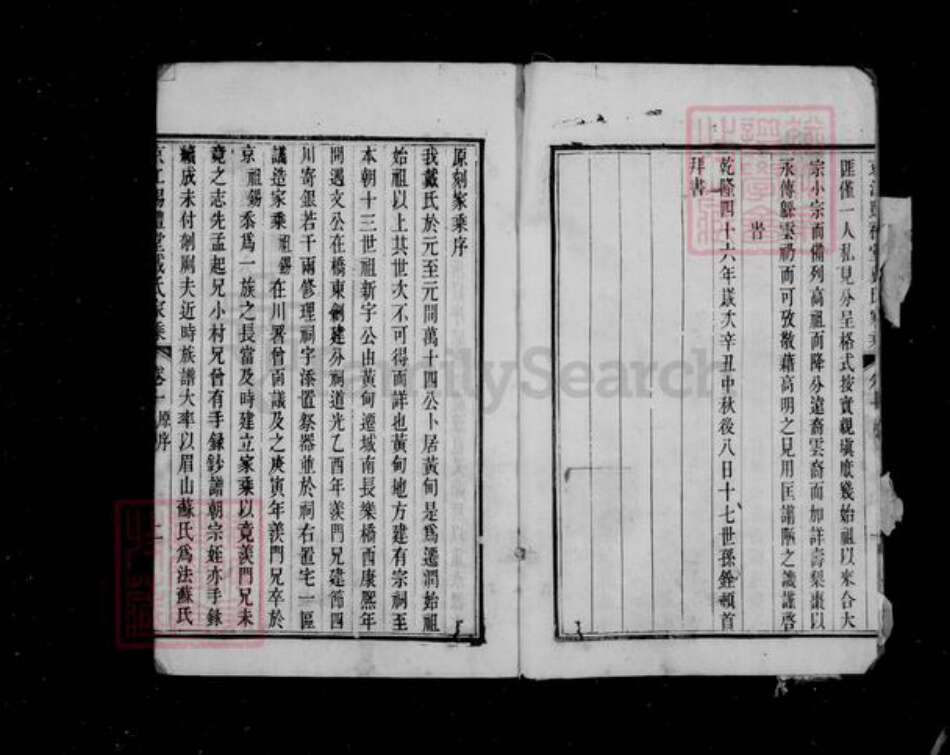 匯僅一人私見分呈格式按實親填庶幾始祖以來合大
宗小宗而備列高祖而降分遠裔雲裔而加詳壽棃棗以
永傳緜雲礽而可攷敬藉高明之見用匡譾陋之識謹啓
旹
乾隆四十六年歲次辛丑中秋後八日十七世孫銓頓首
拜書
原刻家乘序
我戴氏於元至元間萬十四公卜居黃甸是爲遷潤始祖
始祖以上其世次不可得而詳也黃甸地方建有宗祠至
本朝十三世祖新字公由黃甸遷城南長樂橋西康熙年
間遇文公在橋東創建分祠道光乙酉年羨門兄建節四
川寄銀若干兩修理祠宇添置祭器並於祠右置宅一區
議造家乘祖錫在川署曾面議及之庚寅年羨門兄卒於
京祖錫忝爲一族之長當及時建立家乘以竟羨門兄未
竟之志先孟起兄小村兄曾有手錄鈔譜朝宗姪亦手錄
續成未付剞劂夫近時族譜大率以眉山蘇氏爲法蘇氏
京江錫禮堂戴氏家乘 卷一 原序 二
FamilySearch